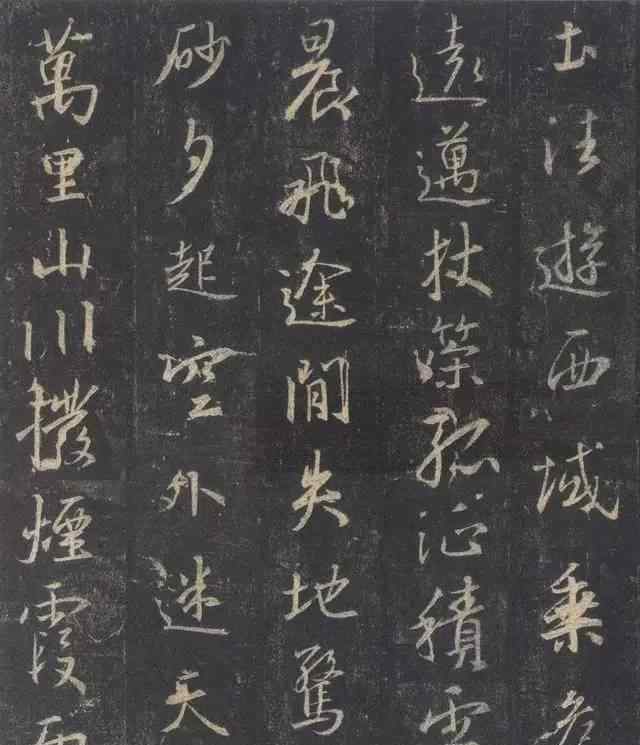 土往遊西域乘危
遠邁杖策孤征積雪
晨飛途間失地驚
砂夕起空外迷天
萬里山川撥煙霞而